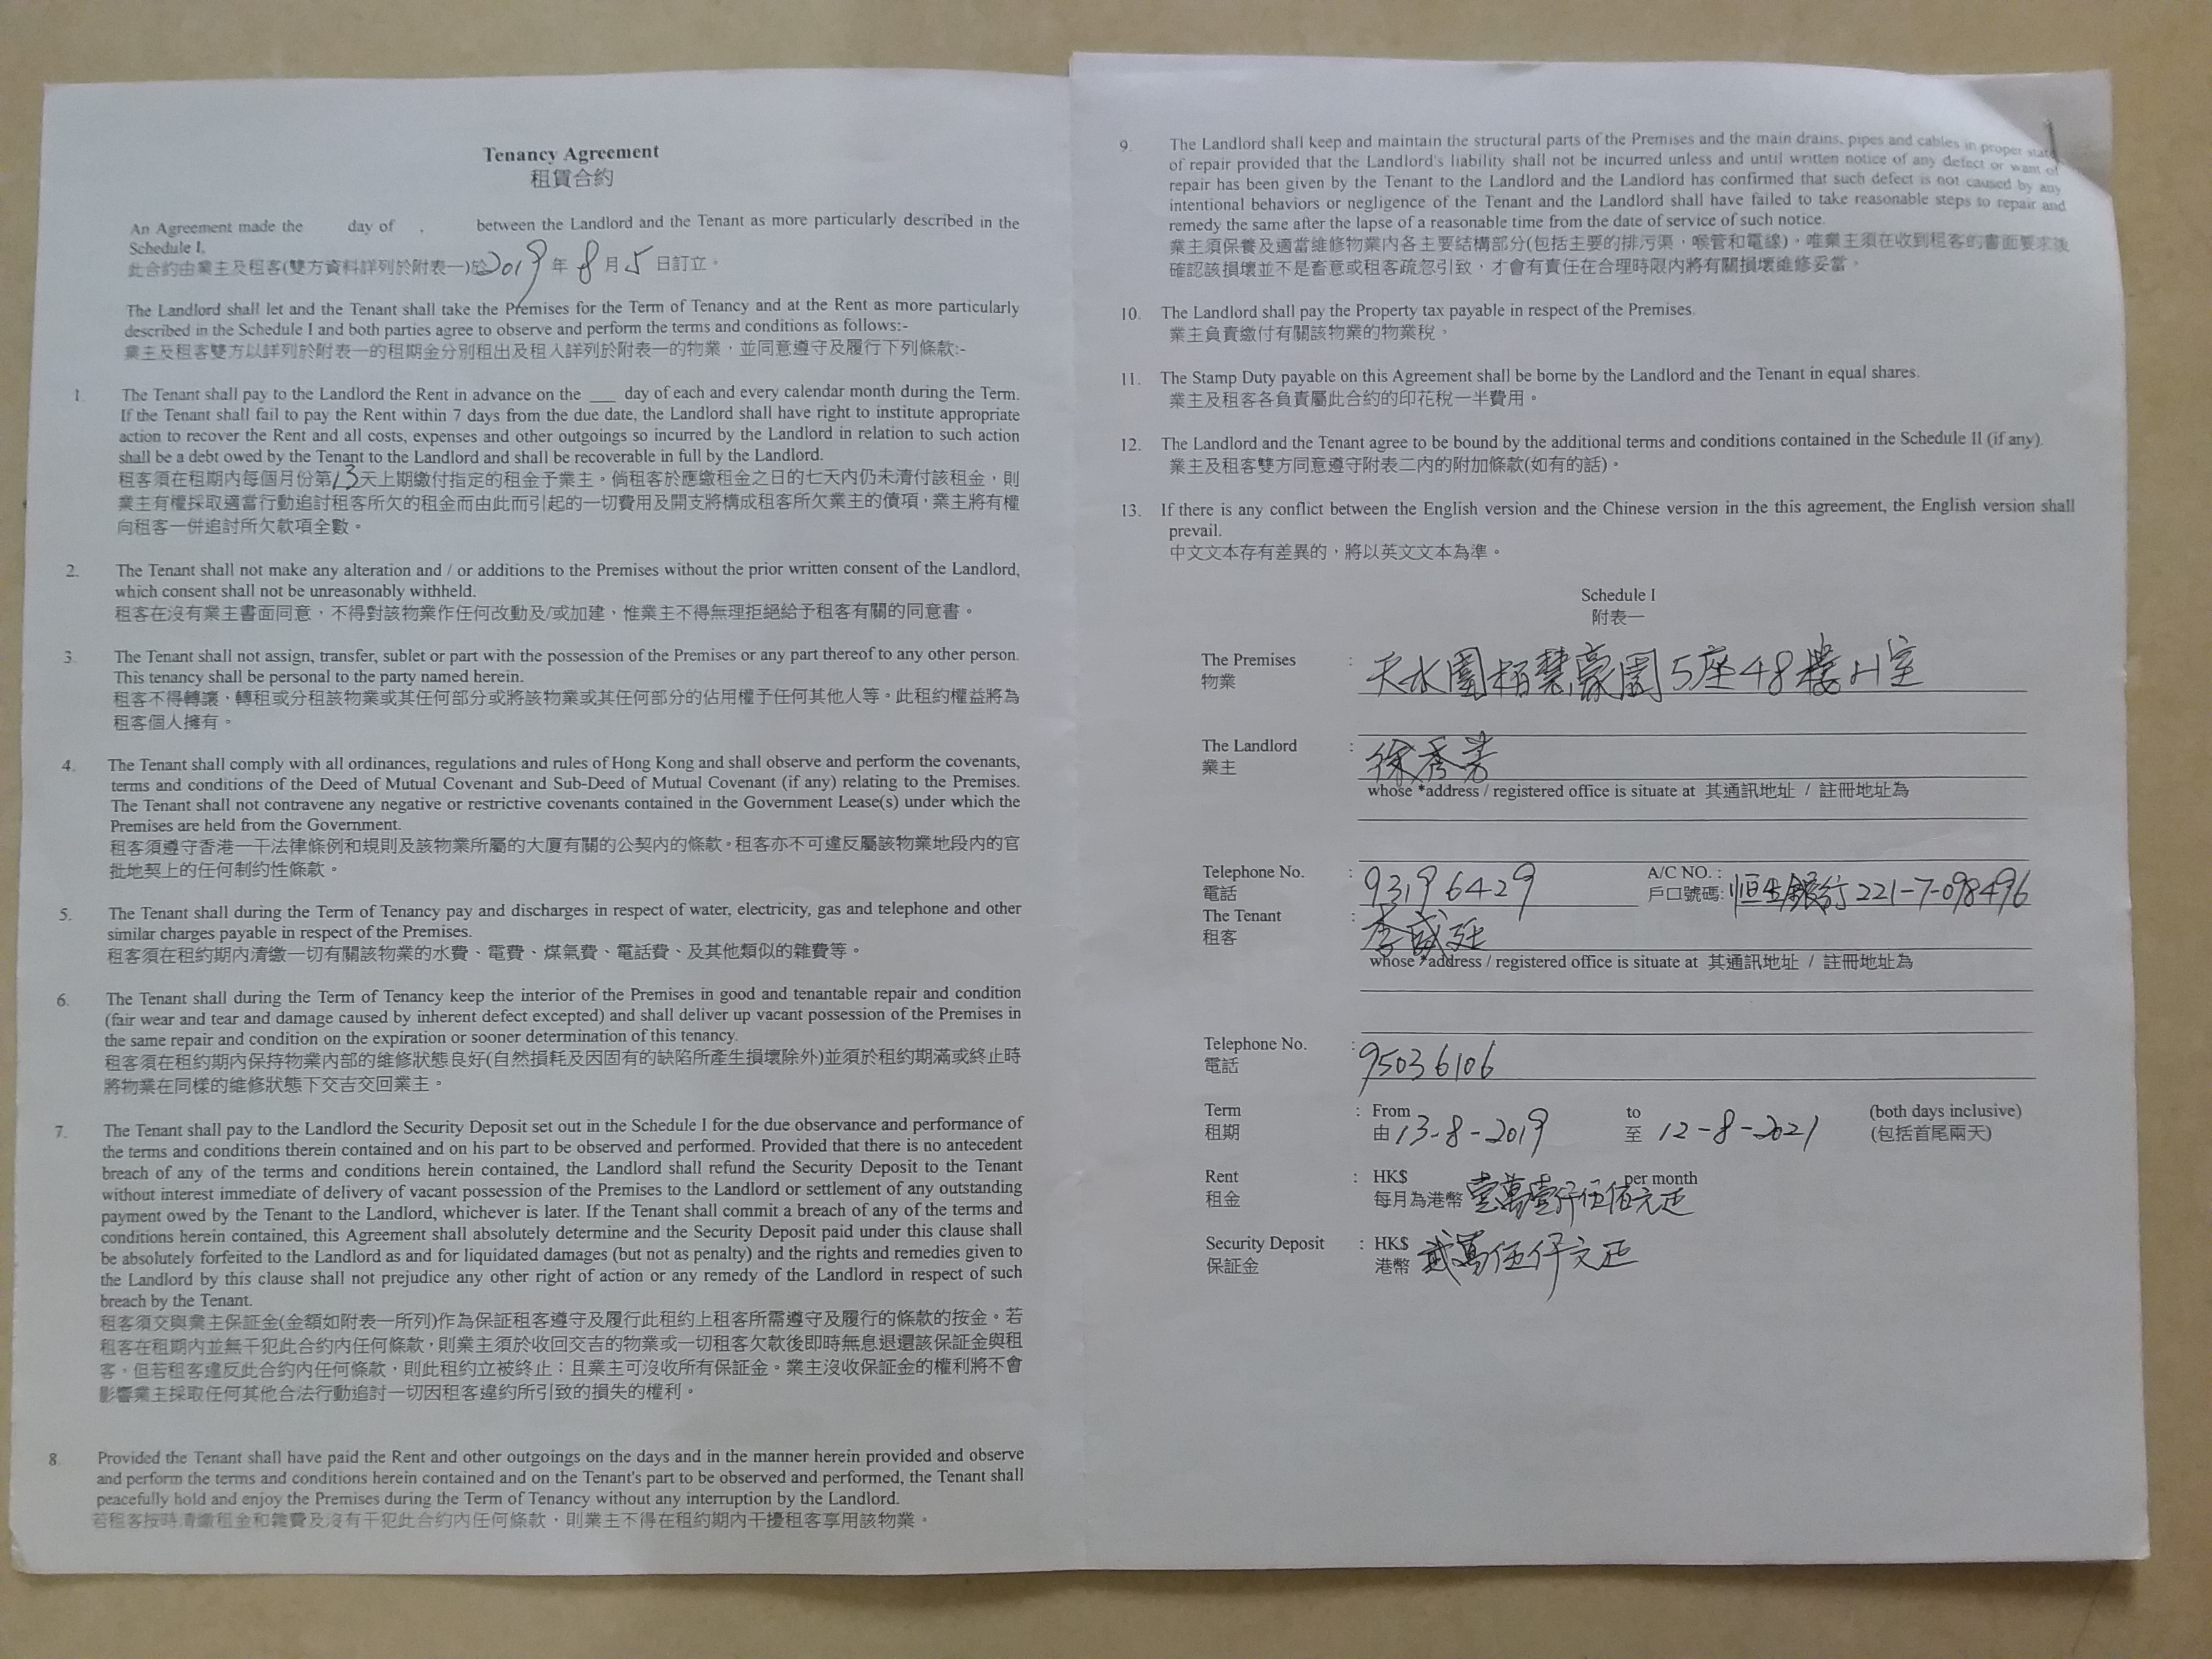 Tenancy Agreement
租賃合約
An Agreement made the day of , between the Landlord and the Tenant as more particularly described in the
Schedule I,
此合約由業主及租客(雙方資料詳列於附表一)於2019年8月5日訂立。
The Landlord shall let and the Tenant shall take the Premises for the Term of Tenancy and at the Rent as more particularly
described in the Schedule I and both parties agree to observe and perform the terms and conditions as follows:-
業主及租客雙方以詳列於附表一的租期金分別租出及租入詳列於附表一的物業，並同意遵守及履行下列條款:-
1. The Tenant shall pay to the Landlord the Rent in advance on the ___ day of each and every calendar month during the Term.
If the Tenant shall fail to pay the Rent within 7 days from the due date, the Landlord shall have right to institute appropriate
action to recover the Rent and all costs, expenses and other outgoings so incurred by the Landlord in relation to such action
shall be a debt owed by the Tenant to the Landlord and shall be recoverable in full by the Landlord.
租客須在租期內每個月份第13天上期繳付指定的租金予業主。倘租客於應繳租金之日的七天內仍未清付該租金，則
業主有權採取適當行動追討租客所欠的租金而由此而引起的一切費用及開支將構成租客所欠業主的債項，業主將有權
向租客一併追討所欠款項全數。
2. The Tenant shall not make any alteration and / or additions to the Premises without the prior written consent of the Landlord,
which consent shall not be unreasonably withheld.
租客在沒有業主書面同意，不得對該物業作任何改動及/或加建，惟業主不得無理拒絕給予租客有關的同意書。
3. The Tenant shall not assign, transfer, sublet or part with the possession of the Premises or any part thereof to any other person.
This tenancy shall be personal to the party named herein.
租客不得轉讓、轉租或分租該物業或其任何部分或將該物業或其任何部分的佔用權予任何其他人等。此租約權益將為
租客個人擁有。
4. The Tenant shall comply with all ordinances, regulations and rules of Hong Kong and shall observe and perform the covenants,
terms and conditions of the Deed of Mutual Covenant and Sub-Deed of Mutual Covenant (if any) relating to the Premises.
The Tenant shall not contravene any negative or restrictive covenants contained in the Government Lease(s) under which the
Premises are held from the Government.
租客須遵守香港一干法律條例和規則及該物業所屬的大廈有關的公契內的條款。租客亦不可違反屬該物業地段內的官
批地契上的任何制約性條款。
5. The Tenant shall during the Term of Tenancy pay and discharges in respect of water, electricity, gas and telephone and other
similar charges payable in respect of the Premises.
租客須在租約期內清繳一切有關該物業的水費、電費、煤氣費、電話費、及其他類似的雜費等。
6. The Tenant shall during the Term of Tenancy keep the interior of the Premises in good and tenantable repair and condition
(fair wear and tear and damage caused by inherent defect excepted) and shall deliver up vacant possession of the Premises in
the same repair and condition on the expiration or sooner determination of this tenancy.
租客須在租約期內保持物業內部的維修狀態良好(自然損耗及因固有的缺陷所產生損壞除外)並須於租約期滿或終止時
將物業在同樣的維修狀態下交吉交回業主。
7. The Tenant shall pay to the Landlord the Security Deposit set out in the Schedule I for the due observance and performance of
the terms and conditions therein contained and on his part to be observed and performed. Provided that there is no antecedent
breach of any of the terms and conditions herein contained, the Landlord shall refund the Security Deposit to the Tenant
without interest immediate of delivery of vacant possession of the Premises to the Landlord or settlement of any outstanding
payment owed by the Tenant to the Landlord, whichever is later. If the Tenant shall commit a breach of any of the terms and
conditions herein contained, this Agreement shall absolutely determine and the Security Deposit paid under this clause shall
be absolutely forfeited to the Landlord as and for liquidated damages (but not as penalty) and the rights and remedies given to
the Landlord by this clause shall not prejudice any other right of action or any remedy of the Landlord in respect of such
breach by the Tenant.
租客須交與業主保証金(金額如附表一所列)作為保証租客遵守及履行此租約上租客所需遵守及履行的條款的按金。若
租客在租期內並無干犯此合約內任何條款，則業主須於收回交吉的物業或一切租客欠款後即時無息退還該保証金與租
客，但若租客違反此合約內任何條款，則此租約立被終止；且業主可沒收所有保証金。業主沒收保証金的權利將不會
影響業主採取任何其他合法行動追討一切因租客違約所引致的損失的權利。
8. Provided the Tenant shall have paid the Rent and other outgoings on the days and in the manner herein provided and observe
and perform the terms and conditions herein contained and on the Tenant's part to be observed and performed, the Tenant shall
peacefully hold and enjoy the Premises during the Term of Tenancy without any interruption by the Landlord.
若租客按時清繳租金和雜費及沒有干犯此合約內任何條款，則業主不得在租約期內干擾租客享用該物業。
9. The Landlord shall keep and maintain the structural parts of the Premises and the main drains, pipes and cables in proper state
of repair provided that the Landlord's liability shall not be incurred unless and until written notice of any defect or want of
repair has been given by the Tenant to the Landlord and the Landlord has confirmed that such defect is not caused by any
intentional behaviors or negligence of the Tenant and the Landlord shall have failed to take reasonable steps to repair and
remedy the same after the lapse of a reasonable time from the date of service of such notice.
業主須保養及適當維修物業內各主要結構部分(包括主要的排污渠，喉管和電線)，唯業主須在收到租客的書面要求後
確認該損壞並不是畜意或租客疏忽引致，才會有責任在合理時限內將有關損壞維修妥當。
10. The Landlord shall pay the Property tax payable in respect of the Premises.
業主負責繳付有關該物業的物業稅。
11. The Stamp Duty payable on this Agreement shall be borne by the Landlord and the Tenant in equal shares.
業主及租客各負責屬此合約的印花稅一半費用。
12. The Landlord and the Tenant agree to be bound by the additional terms and conditions contained in the Schedule II (if any).
業主及租客雙方同意遵守附表二內的附加條款(如有的話)。
13. If there is any conflict between the English version and the Chinese version in the this agreement, the English version shall
prevail.
中文文本存有差異的，將以英文文本為準。
Schedule I
附表一
The Premises : 天水圍栢慧豪園5座48樓H室
物業
The Landlord : 徐秀芳
業主
whose *address / registered office is situate at 其通訊地址 / 註冊地址為
Telephone No. : 93196429 A/C NO. :
電話 戶口號碼: 恒生銀行 221-7-098496
The Tenant : 李威廷
租客
whose *address / registered office is situate at 其通訊地址 / 註冊地址為
Telephone No. : 95036106
電話
Term : From to (both days inclusive)
租期 由 13-8-2019 至 12-8-2021 (包括首尾兩天)
Rent : HK$ per month
租金 每月為港幣 壹萬壹仟伍佰元正
Security Deposit : HK$
保証金 港幣 貳萬伍仟文正